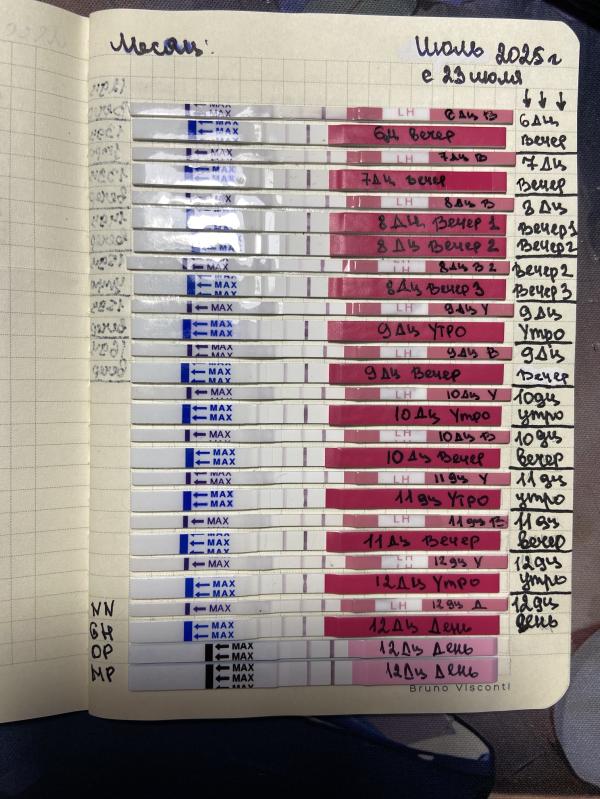 Месяц: Июль 2025г
с 23 июля
MAX LH 6ДЦ В 6ДЦ
MAX 6Ц Вечер Вечер
MAX LH 7ДЦ В 7ДЦ
MAX 7ДЦ Вечер Вечер
MAX LH 8ДЦ В 8ДЦ
8ДЦ Вечер 1 Вечер1
MAX 8ДЦ Вечер 2 Вечер2
MAX LH 8ДЦ В 2 Вечер2
MAX MAX 8ДЦ Вечер 3 Вечер3
MAX LH 9ДЦ У 9ДЦ
MAX MAX 9ДЦ Утро Утро
MAX LH 9ДЦ В 9ДЦ
MAX MAX 9ДЦ Вечер Вечер
MAX LH 10ДЦ У 10ДЦ
MAX MAX 10ДЦ Утро утро
MAX LH 10ДЦ В 10ДЦ
MAX MAX 10ДЦ Вечер вечер
MAX LH 11ДЦ У 11ДЦ
MAX MAX 11ДЦ Утро утро
MAX LH 11ДЦ В 11ДЦ
MAX MAX 11ДЦ Вечер вечер
MAX LH 12ДЦ У 12ДЦ
MAX MAX 12ДЦ Утро утро
NN MAX LH 12ДЦ Д 12ДЦ
GH MAX MAX 12ДЦ День день
OP MAX MAX 12ДЦ День
MP MAX MAX MAX 12ДЦ День
Bruno Visconti